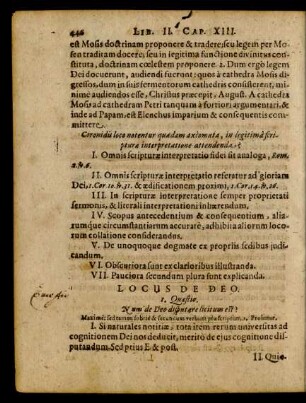 446 LIB. II. CAP. XIII.
est Mosis doctrinam proponere & tradere; seu legem per Mosen
traditam docere; seu in legitima functione divinitus constituta,
doctrinam cœlestem proponere. 2. Dum ergò legem
Dei docuerunt, audiendi fuerunt: quos à cathedra Mosis digressos,
dum in suis fermentorum cathedris consisterent, minimè
audiendos esse, Christus præcepit, August. A cathedra
Mosis ad cathedram Petri tanquam à fortiori argumentari, &
inde ad Papam, est Elenchus imparium & consequentis
committere.
Coronidis loco notentur quædam axiomata, in legitima scripturæ
interpretatione attendenda.
I. Omnis scripturæ interpretatio fidei sit analoga, Rom.
12. v. 6.
II. Omnis scripturæ interpretatio referatur ad gloriam
Dei, 1. Cor. 10. v. 31. & ædificationem proximi, 1. Cor. 14. v. 26.
III. In scripturæ interpretatione semper proprietati
sermonis, & literali interpretationi inhærendum.
IV. Scopus antecedentium & consequentium, aliarumque
circumstantiarum accuratè, adhibita aliorum locorum
collatione considerandus.
V. De unoquoque dogmate ex propriis sedibus judicandum.
VI. Obscuriora sunt ex clarioribus illustranda.
VII. Pauciora secundum plura sunt explicanda.
LOCUS DE DEO.
1. Quæstio.
Num de Deo disputare licitum est?
I. Si naturales notitiæ, tota item rerum universitas ad
cognitionem Dei nos deducit, meritò de ejus cognitione disputandum
Sed prius E & post.
II. Quic-